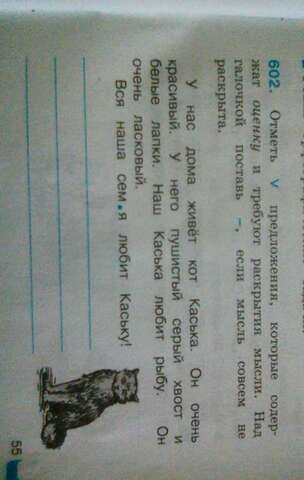 602. Отметь V предложения, которые содер-
жат оценку и требуют раскрытия мысли. Над
галочкой поставь –, если мысль совсем не
раскрыта.
У нас дома живёт кот Каська. Он очень
красивый. У него пушистый серый хвост и
белые лапки. Наш Каська любит рыбу. Он
очень ласковый.
Вся наша сем.я любит Каську!
55